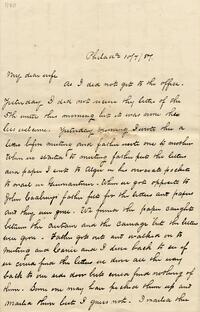 Philad'a 10/7/87.
My dear wife
As I did not get to the office
yesterday I did not receive thy letter of the
5th until this morning but it was none the
less welcome. Yesterday morning I wrote thee a
letter before meeting and father wrote one to mother
When we started to meeting father put the letters
and paper I sent to in his overcoat pocket
to mail in Germantown. When we got opposite to
John father felt for the letters and paper
and they were gone. We found the paper caught
between the and the carriage but the letters
were gone. Father got out and walked on to
meeting and and I drove back to see if
we could find the letters we drove all the way
back to our side door but could find nothing of
them. Some one may have picked them up and
mailed them but I guess not. I mailed the